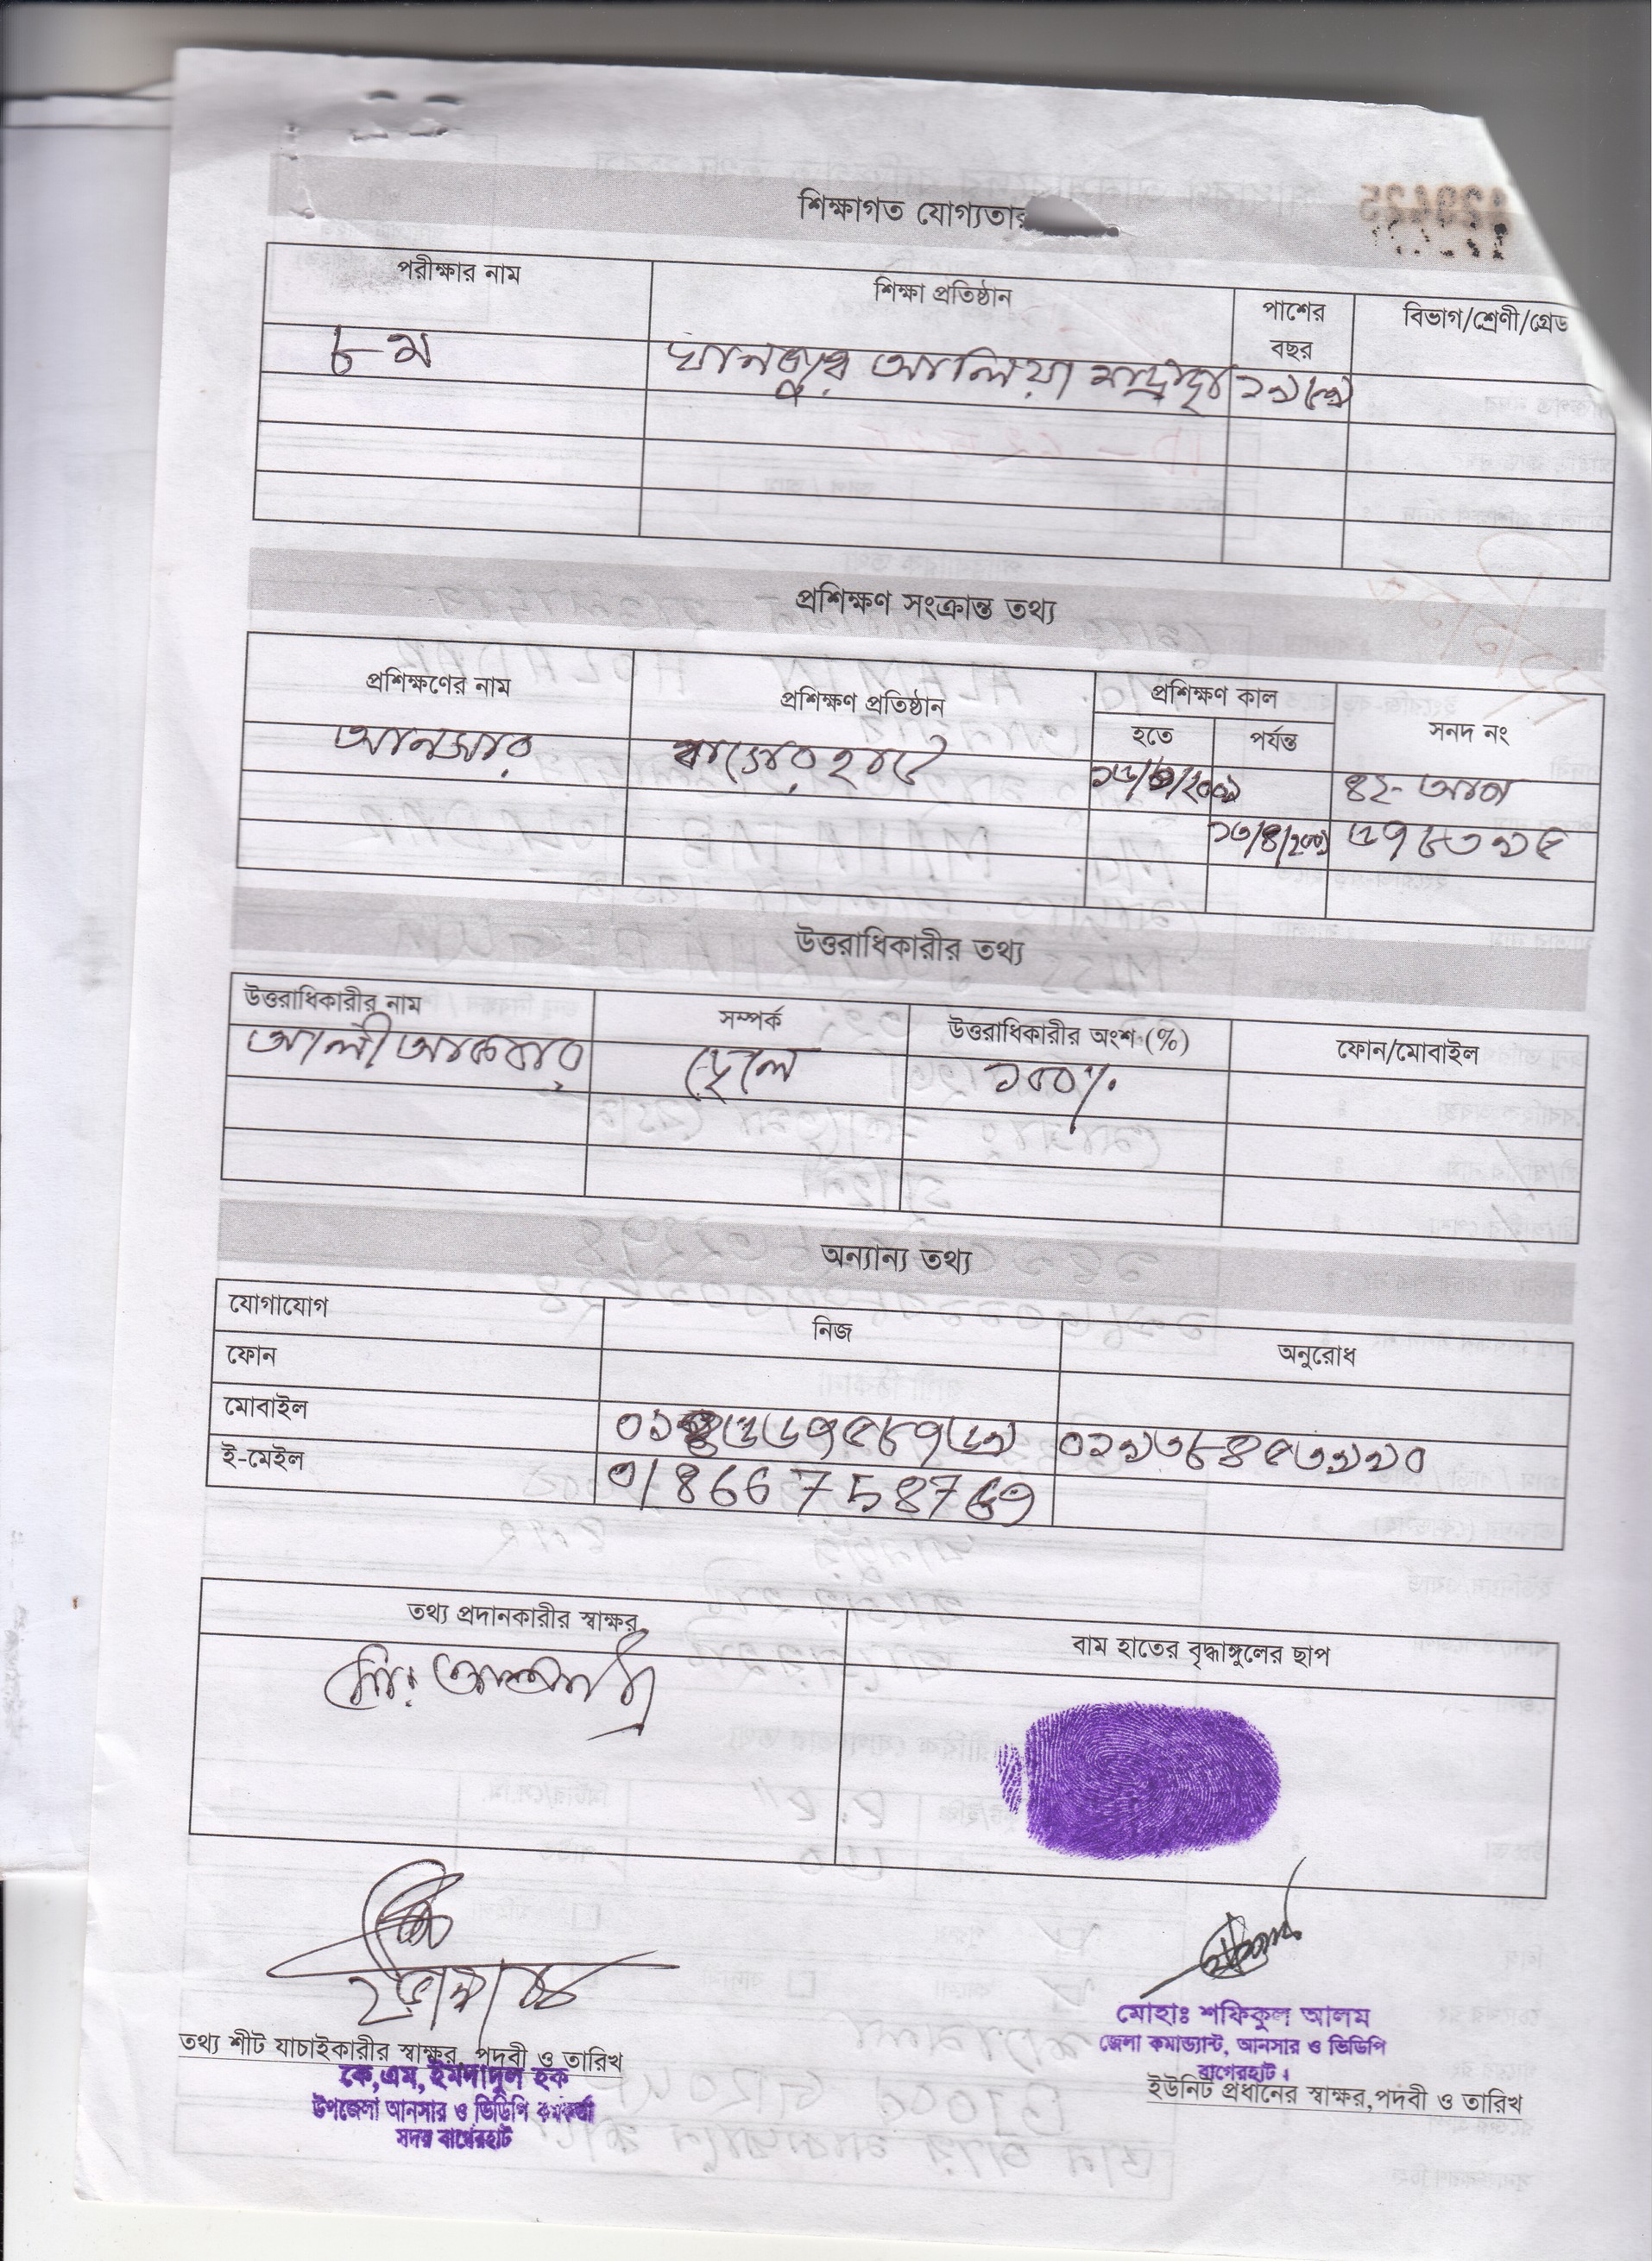 শিক্ষাগত যোগ্যতার
পরীক্ষার নাম শিক্ষা প্রতিষ্ঠান পাশের বছর বিভাগ/শ্রেণী/গ্রেড
৮ম খানজাপুর আলিয়া মাদ্রাসা
প্রশিক্ষণ সংক্রান্ত তথ্য
প্রশিক্ষণের নাম প্রশিক্ষণ প্রতিষ্ঠান প্রশিক্ষণ কাল সনদ নং
হতে পর্যন্ত
আনসার বাগেরহাট ৪২- আন
১৩/৪/২০০১ ৬৭৮৩১৫
উত্তরাধিকারীর তথ্য
উত্তরাধিকারীর নাম সম্পর্ক উত্তরাধিকারীর অংশ (%) ফোন/মোবাইল
আলী আকবার ছেলে ১০০%
অন্যান্য তথ্য
যোগাযোগ নিজ অনুরোধ
ফোন
মোবাইল ০১৮৬৬৭৫৮৭৬৯
ই-মেইল 018667587৬৯
তথ্য প্রদানকারীর স্বাক্ষর বাম হাতের বৃদ্ধাঙ্গুলের ছাপ
মোঃ আলআমীন
তথ্য শীট যাচাইকারীর স্বাক্ষর, পদবী ও তারিখ
কে,এম, ইমদাদুল হক
উপজেলা আনসার ও ভিডিপি কর্মকর্তা
সদর বাগেরহাট
মোহাঃ শফিকুল আলম
জেলা কমান্ড্যান্ট, আনসার ও ভিডিপি
বাগেরহাট।
ইউনিট প্রধানের স্বাক্ষর,পদবী ও তারিখ